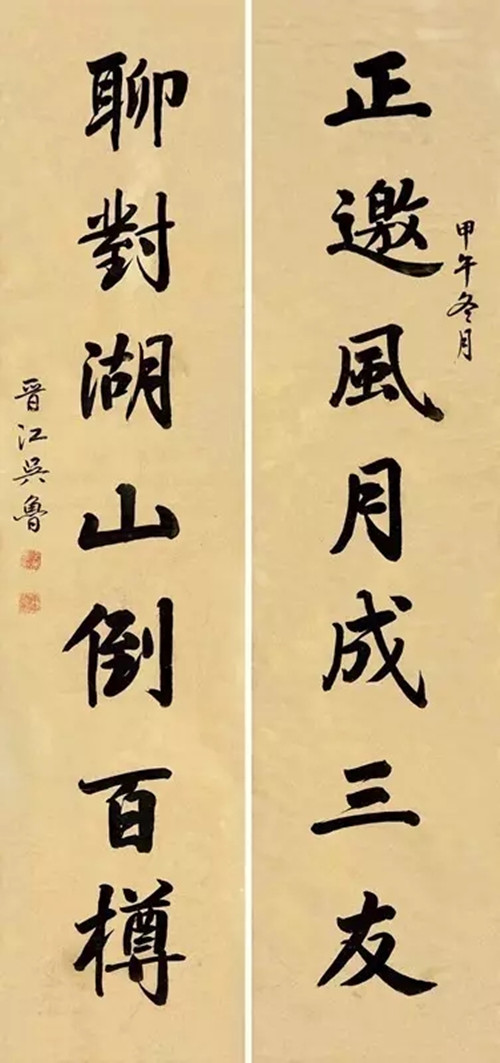 正邀風月成三友
甲午冬月
聊對湖山倒百樽
晋江吳魯